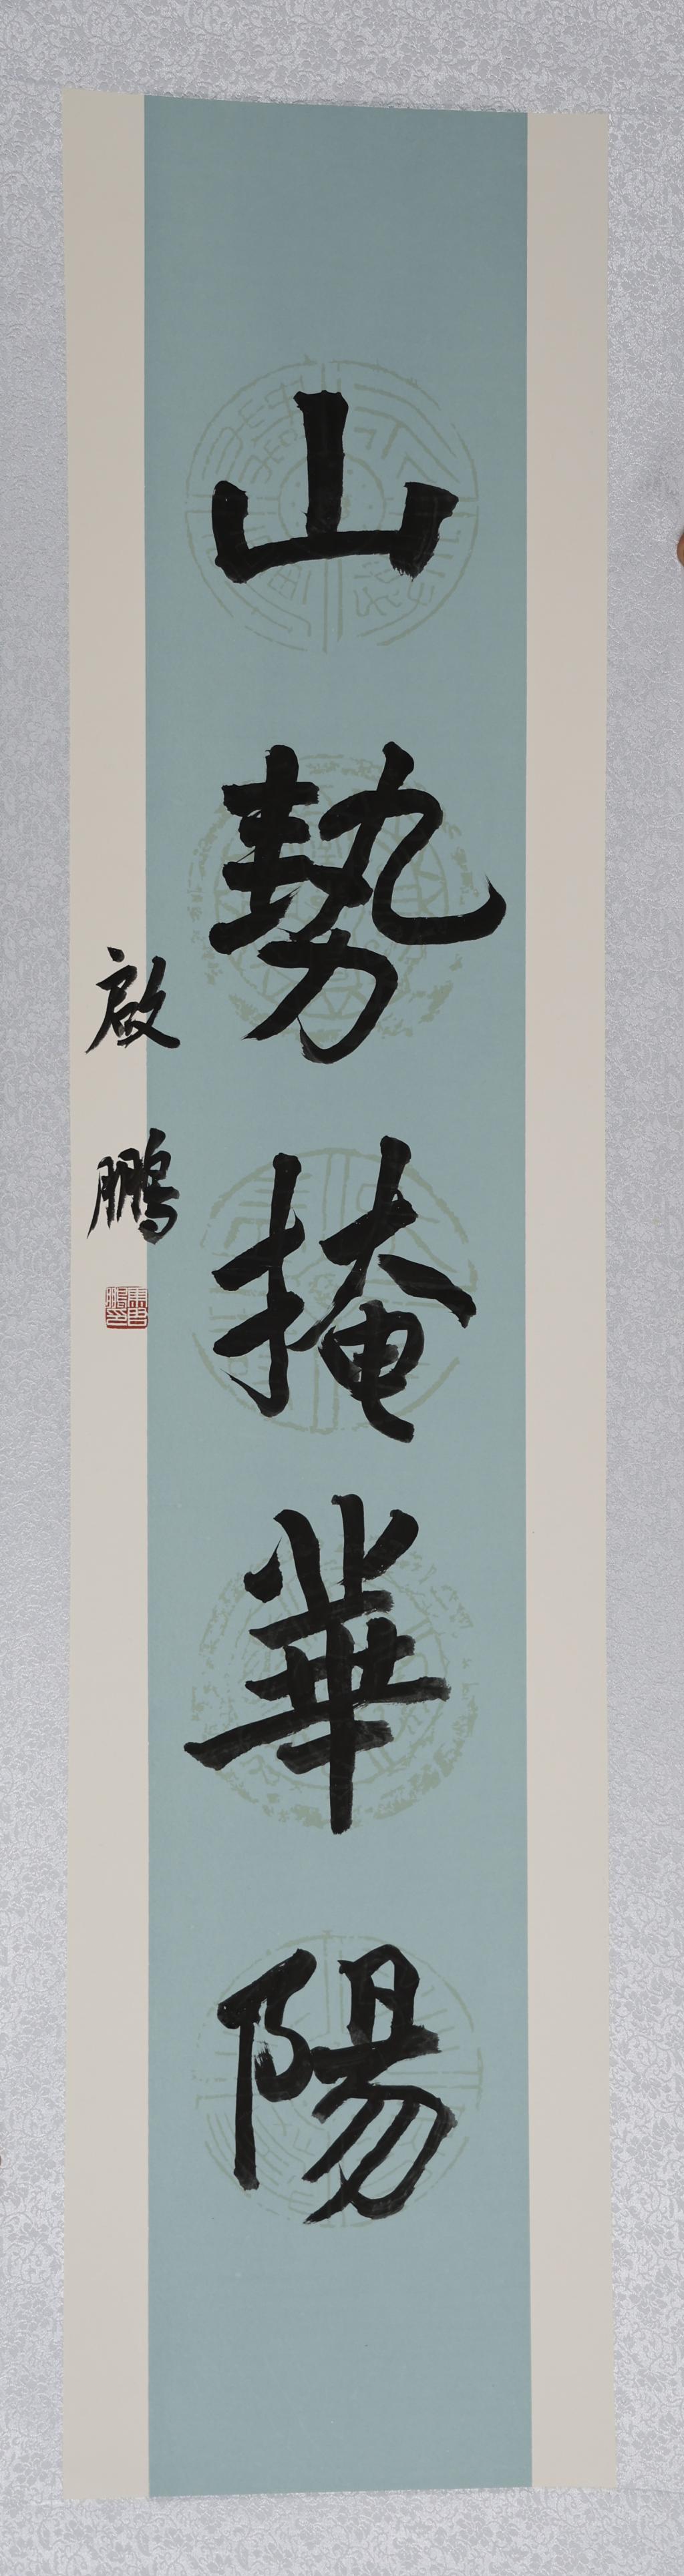 山勢掩華陽
啟鵬